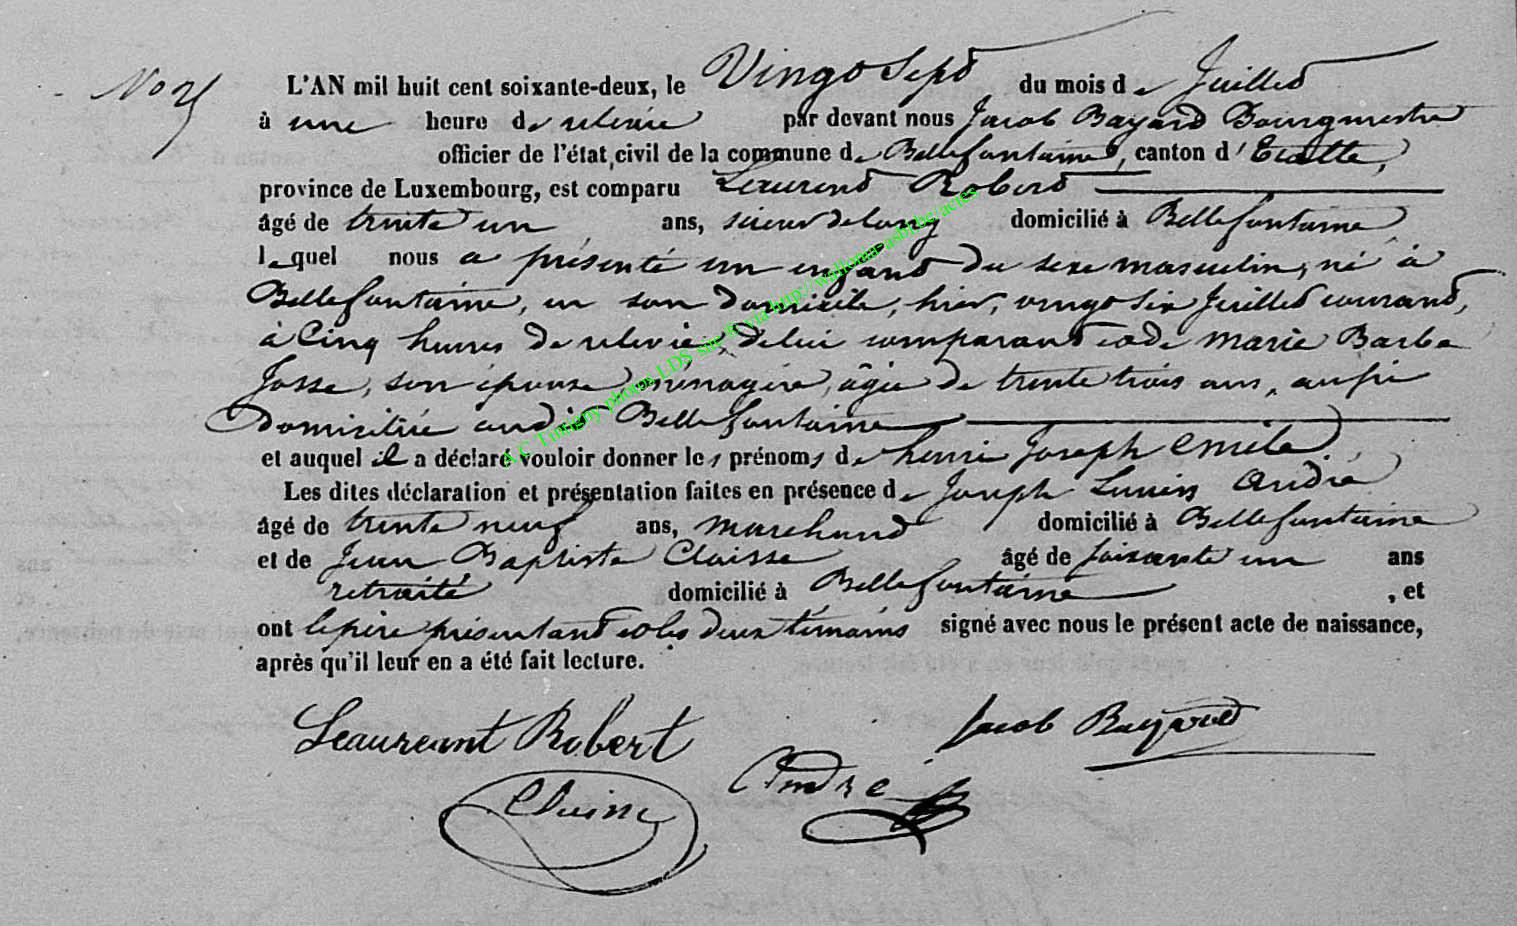 No 25
L'AN mil huit cent soixante-deux, le Vingt Sept du mois de Juillet
à une heure de relevée par devant nous Jacob Bayard Bourgmestre
officier de l'état civil de la commune de Bellefontaine, canton d'Etalle,
province de Luxembourg, est comparu Laurent Robert
âgé de trente un ans, scieur de long domicilié à Bellefontaine
lequel nous a présenté un enfant du sexe masculin, né à
Bellefontaine, en son domicile, hier, vingt six Juillet courant,
à Cinq heures de relevée, de lui comparant et de Marie Barbe
Josse, son épouse, ménagère, âgée de trente trois ans, aussi
Domiciliée audit Bellefontaine
et auquel il a déclaré vouloir donner les prénoms de henri Joseph emile.
Les dites déclaration et présentation faites en présence de Joseph Lucien André
âgé de trente neuf ans, marchand domicilié à Bellefontaine
et de Jean Baptiste Claisse âgé de soixante un ans
retraité domicilié à Bellefontaine, et
ont le père présentant et les deux témoins signé avec nous le présent acte de naissance,
après qu'il leur en a été fait lecture.
Leaureant Robert
Jacob Bayard
André
Claisse
A.C. Tintigny photos LDS sur site via http://wallonia-asbl.be/actes